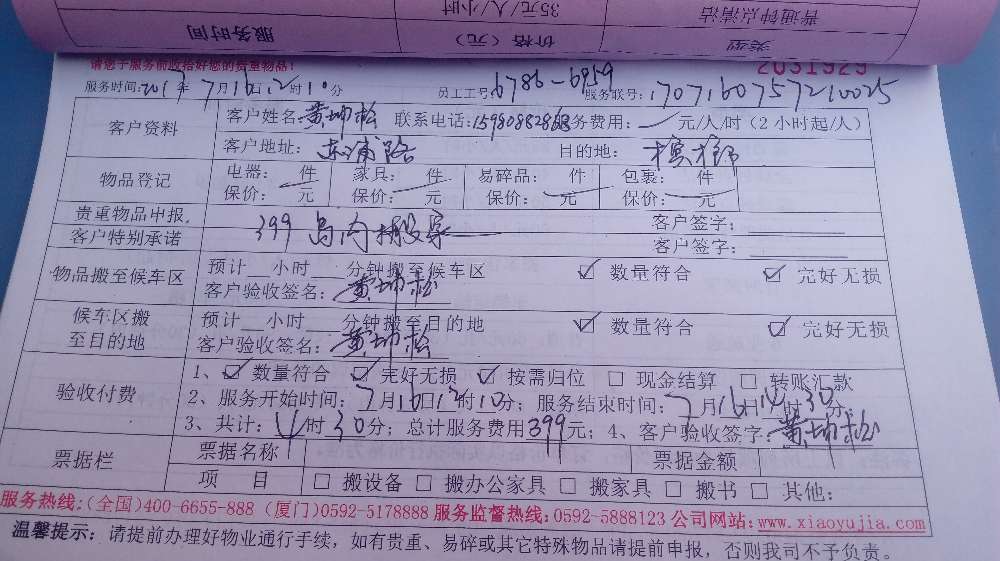 服务时间
价格（元）
类型
35元/人/小时
普通钟点清洁
请您于服务前收拾好您的贵重物品！
2031929
服务时间：2017年7月16日12时10分 员工工号：6786-6959 服务联号：1707160757210025
客户资料
客户姓名：黄坤松 联系电话：服务费用： 元/人/时（2小时起/人）
客户地址：东浦路 目的地：
物品登记
电器： 件 家具： 件 易碎品： 件 包裹： 件
保价： 元 保价： 元 保价： 元 保价： 元
贵重物品申报， 399 岛内 客户签字：
客户特别承诺 客户签字：
物品搬至候车区
预计 小时 分钟搬至候车区 ☑ 数量符合 ☑ 完好无损
客户验收签名：黄坤松
候车区搬至目的地
预计 小时 分钟搬至目的地 ☑ 数量符合 ☑ 完好无损
客户验收签名：黄坤松
验收付费
1、☑ 数量符合 ☑ 完好无损 ☑ 按需归位 □ 现金结算 □ 转账汇款
2、服务开始时间：7月16日12时10分；服务结束时间：7月16日 时30分。
3、共计：4时30分；总计服务费用399元；4、客户验收签字：黄坤松
票据栏
票据名称 票据金额
项 目 □ 搬设备 □ 搬办公家具 □ 搬家具 □ 搬书 □ 其他：
服务热线：(全国)400-6655-888 (厦门)0592-5178888 服务监督热线：0592-5888123 公司网站：www.xiaoyujia.com
温馨提示：请提前办理好物业通行手续，如有贵重、易碎或其它特殊物品请提前申报，否则我司不予负责。